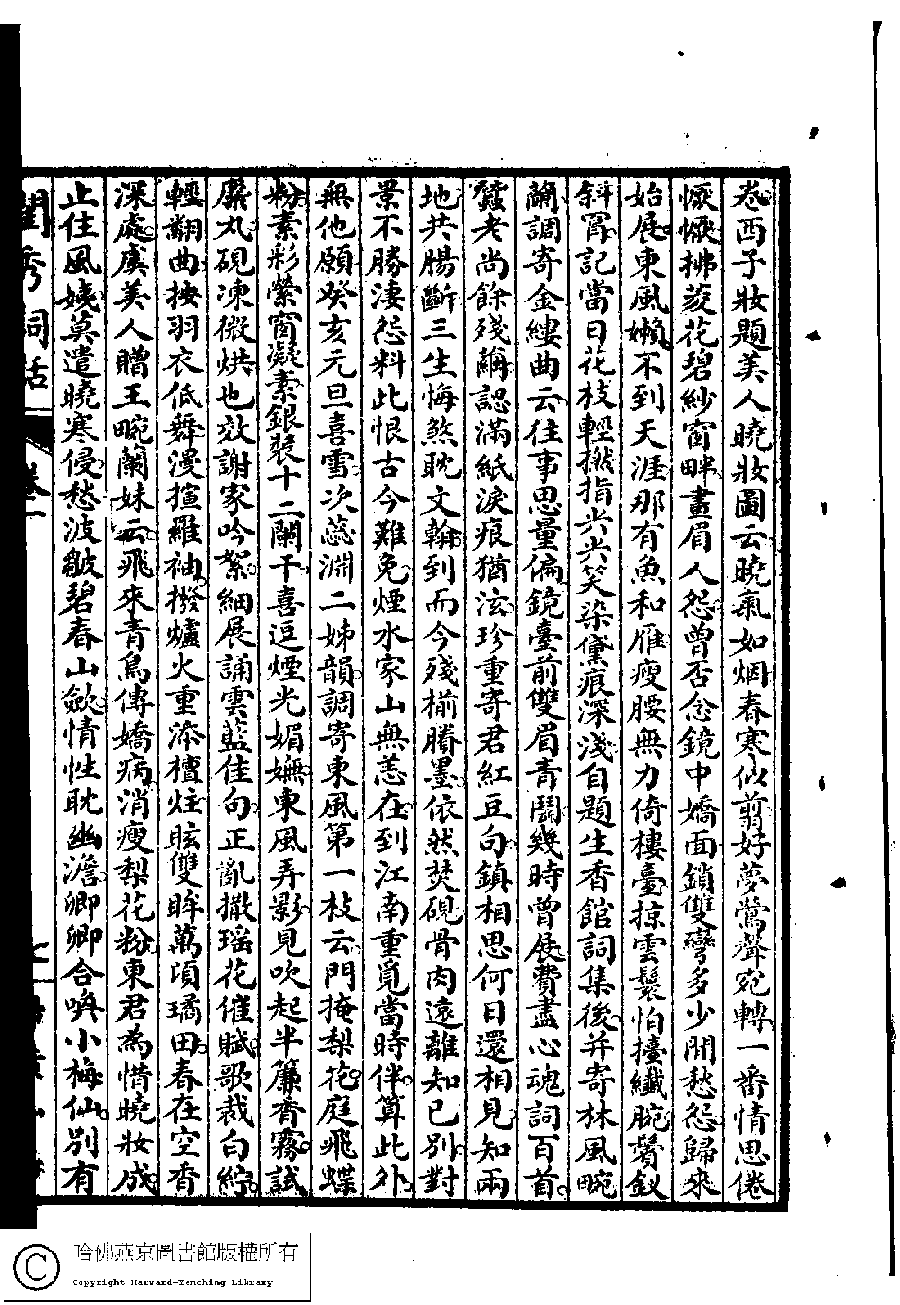 卷西子妝題美人曉妝圖云曉氣如烟春寒似翦好夢鶯聲宛轉一番情思倦
懨懨拂菱花碧紗窗畔畫眉人怨曾否念鏡中嬌面鎖雙彎多少閒愁怨歸來
始展東風嬾不到天涯那有魚和雁瘦腰無力倚樓臺掠雲鬟怕擡纖腕鬢釵
斜罥記當日花枝輕撚指尖尖笑染黛痕深淺自題生香館詞集後并寄林風畹
蘭調寄金縷曲云往事思量偏鏡臺前雙眉青鬭幾時曾展費盡心魂詞百首
蠶老尚餘殘繭認滿紙淚痕猶泫珍重寄君紅豆句鎮相思何日還相見知兩
地共腸斷三生悔煞耽文翰到而今殘楄賸墨依然焚硯骨肉遠離知已別對
景不勝淒怨料此恨古今難免煙水家山無恙在到江南重覓當時伴算此外
無他願癸亥元旦喜雪次蕊淵二姊韻調寄東風第一枝云門掩梨花庭飛蝶
粉素彩縈窗凝素銀裝十二闌干喜逗煙光媚嫵東風弄影見吹起半簾香霧試
麝丸硯凍微烘也效謝家吟絮細展誦雲藍佳句正亂撒瑤花催賦歌裁白紵
輕翻曲按羽衣低舞漫揎羅袖撥爐火重添檀炷眩雙眸萬頃璚田春在空香
深處虞美人贈王畹蘭妹云飛來青鳥傳嬌病消瘦梨花粉東君為惜曉妝成
止住風姨莫遣曉寒侵愁波皺碧春山斂情性耽幽澹卿卿合喚小梅仙別有
閨秀詞話
卷一
哈佛燕京圖書館版權所有
Copyright Harvard-Yenching Library